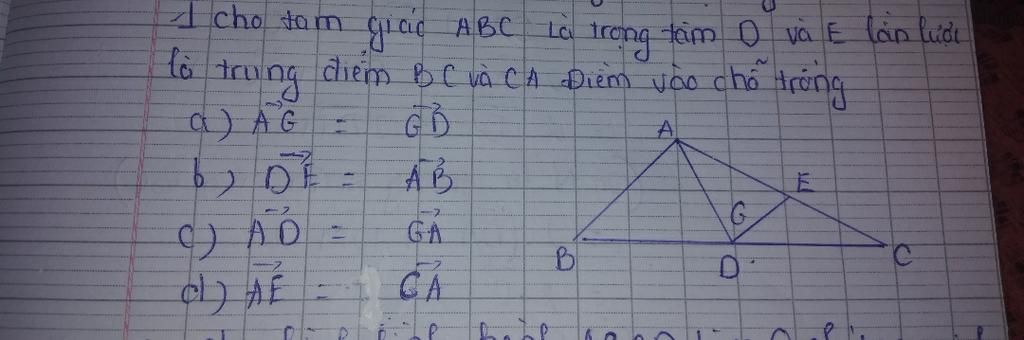 1 cho tam giác ABC Là trọng tâm D và E lần lượt
là trung điểm BC và CA Điểm vào chỗ trống
a) AG = GD
b) DE = AB
c) AD = GA
d) AE = CA
A
E
G
B
D
C